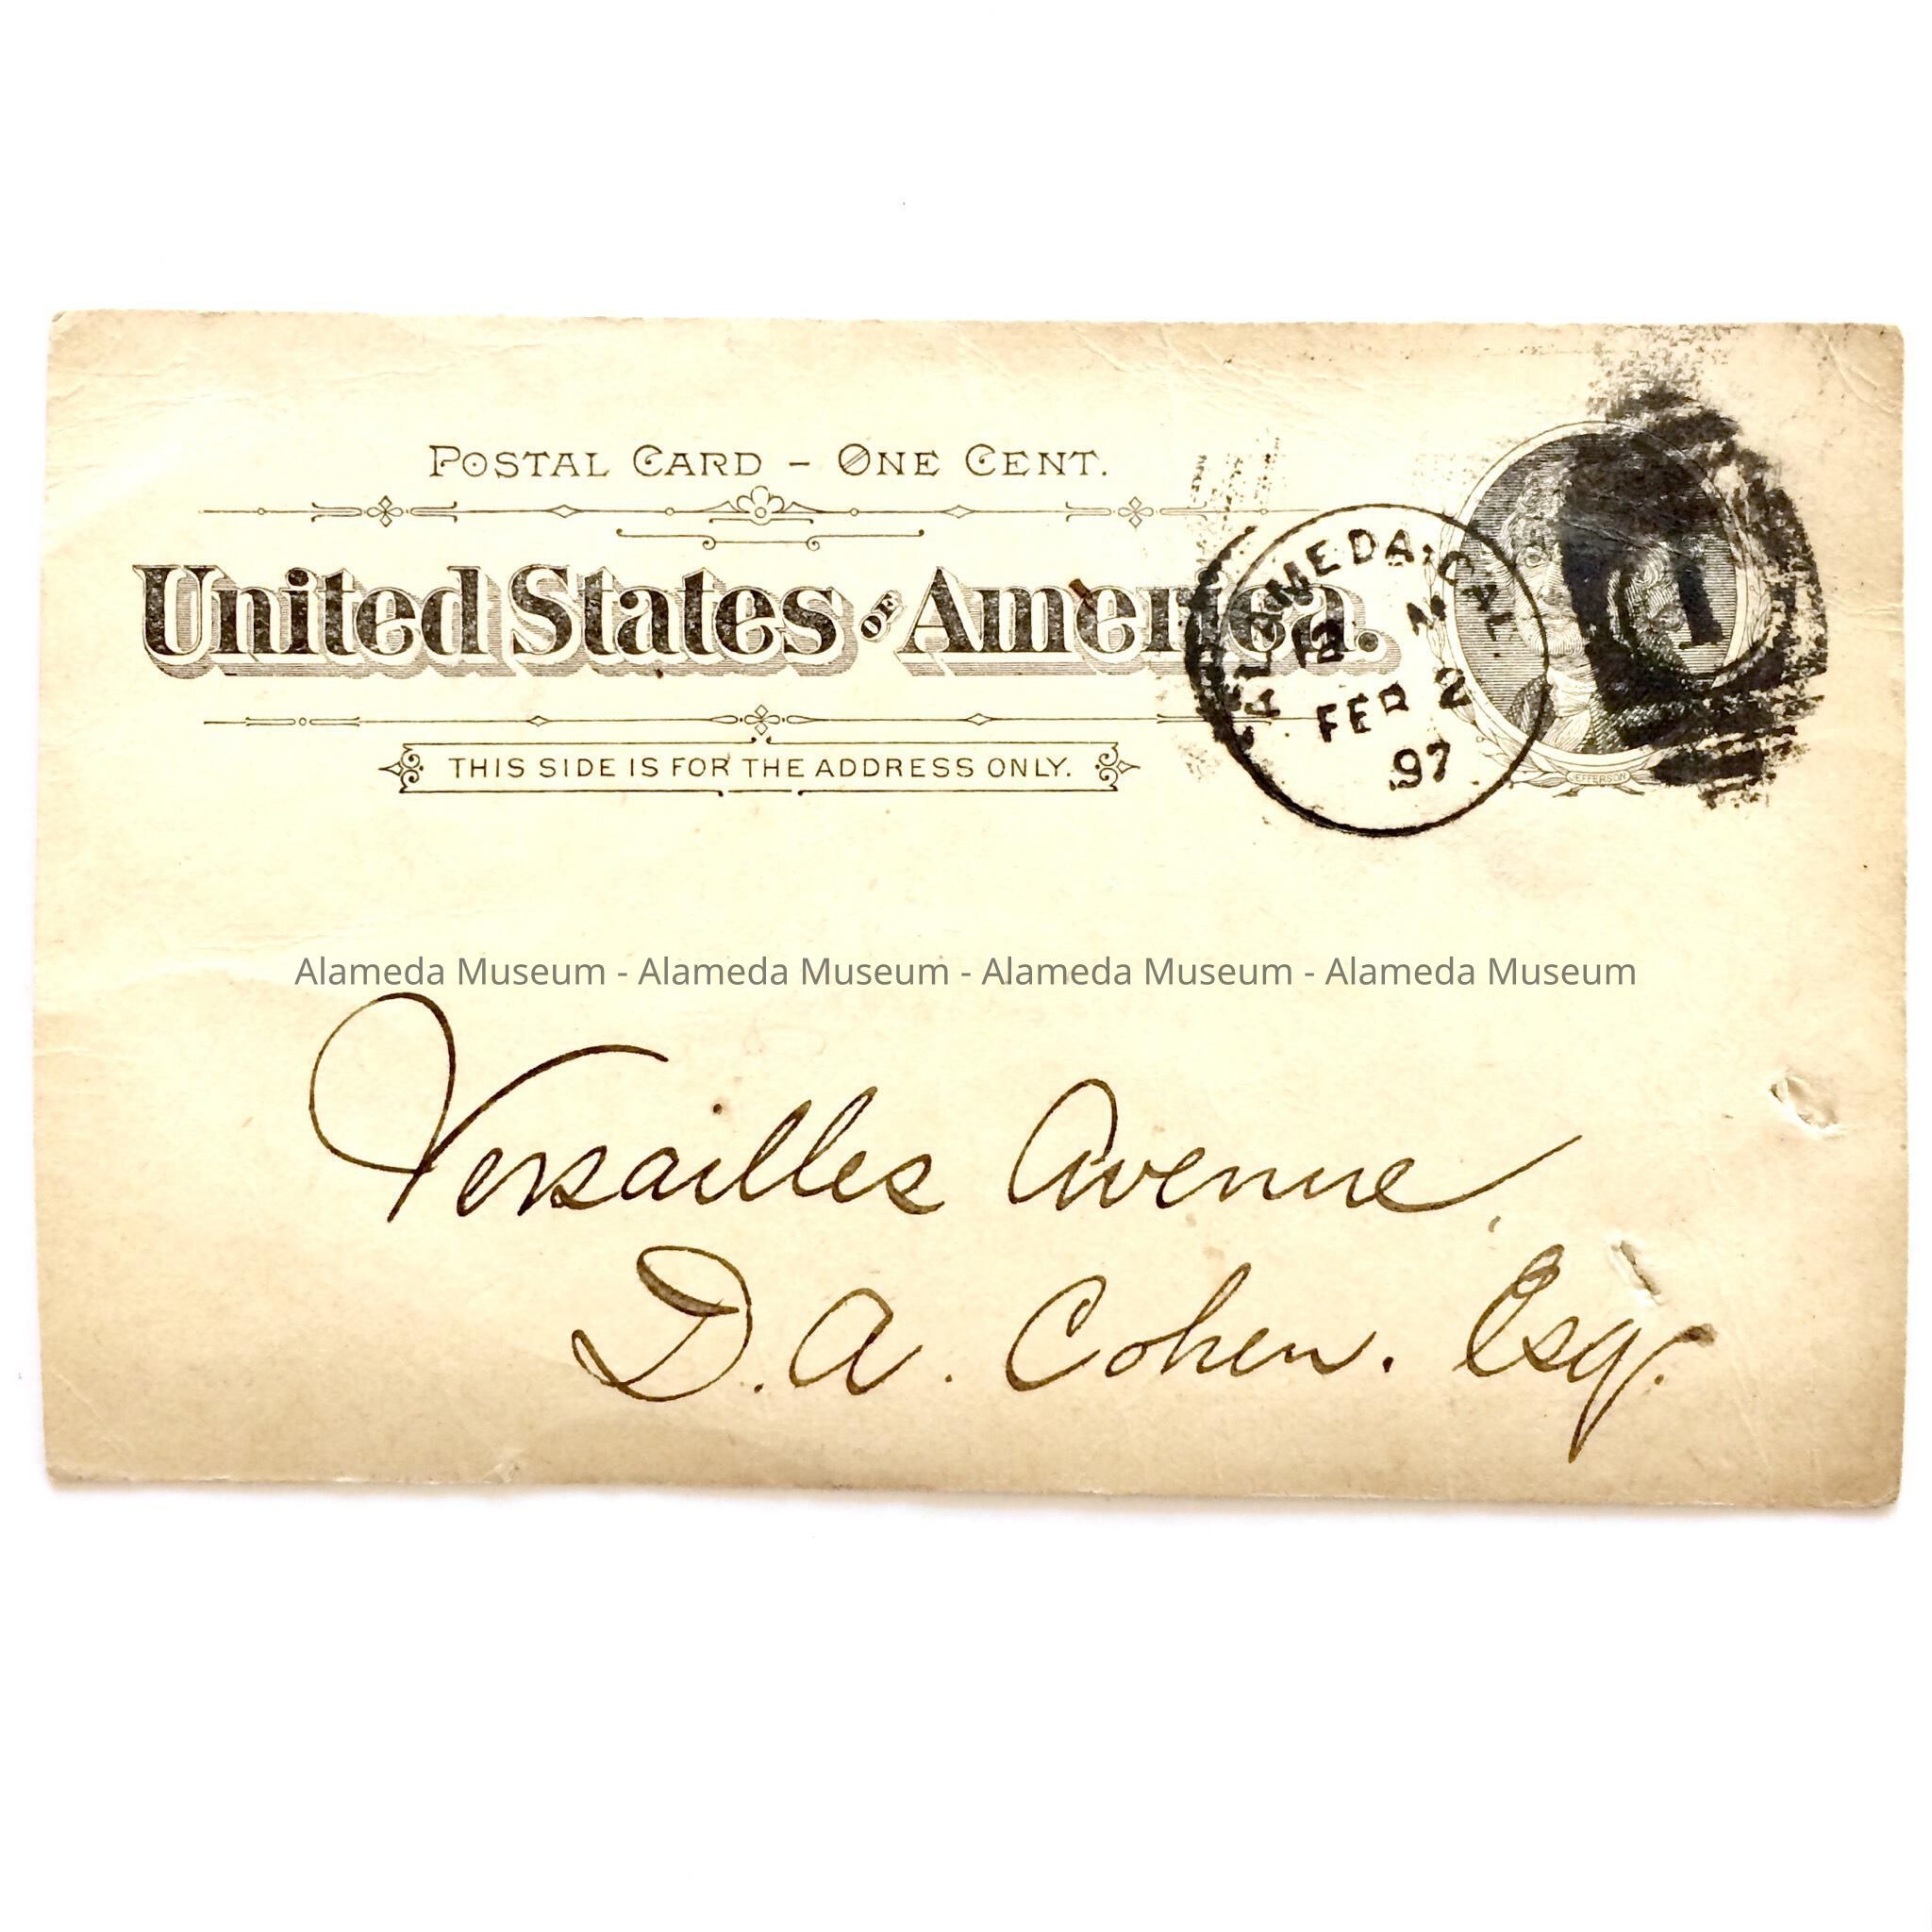 POSTAL CARD – ONE CENT.
United States OF America.
THIS SIDE IS FOR THE ADDRESS ONLY.
ALAMEDA, CAL.
12 M
FEB 2
97
1
JEFFERSON
Alameda Museum - Alameda Museum - Alameda Museum - Alameda Museum
Versailles Avenue,
D. A. Cohen. Esq.